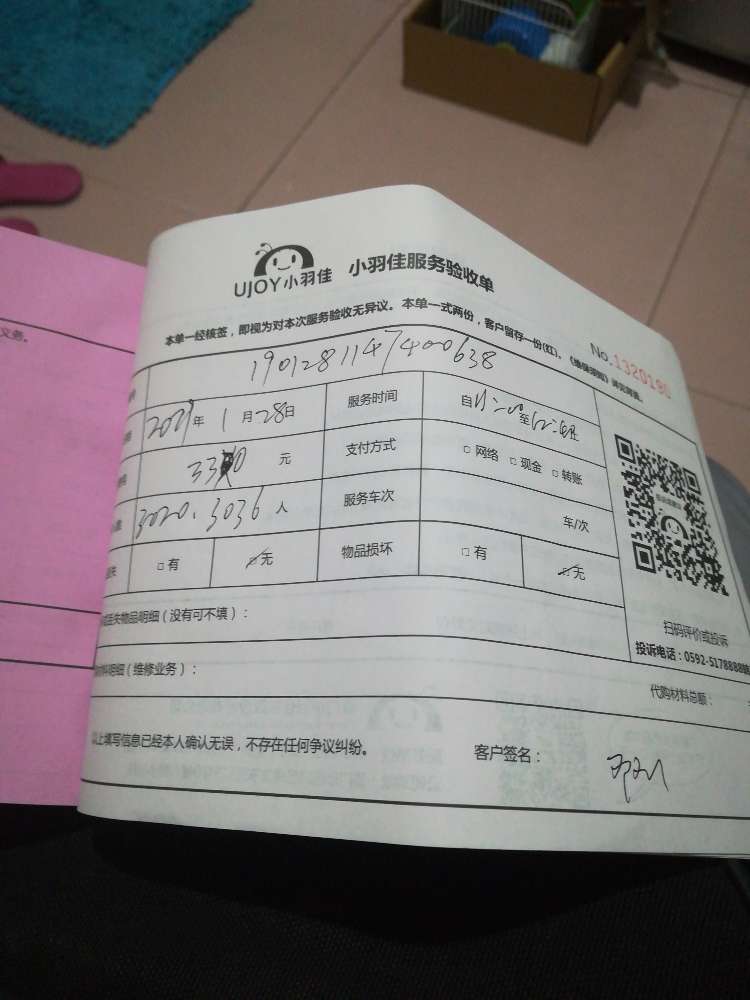 UJOY小羽佳 小羽佳服务验收单
本单一经核签，即视为对本次服务验收无异议。本单一式两份，客户留存一份(红)。
No.1320190
1901281147400638
年 1 月 28 日 服务时间 自 至
元 支付方式 □ 网络 □ 现金 □ 转账
3020、3036 人 服务车次 车/次
□ 有 □ 无 物品损坏 □ 有 □ 无
丢失物品明细（没有可不填）：
材料明细（维修业务）：
扫码评价或投诉
投诉电话：0592-5178888
代购材料总额：
以上填写信息已经本人确认无误，不存在任何争议纠纷。 客户签名：
义务。